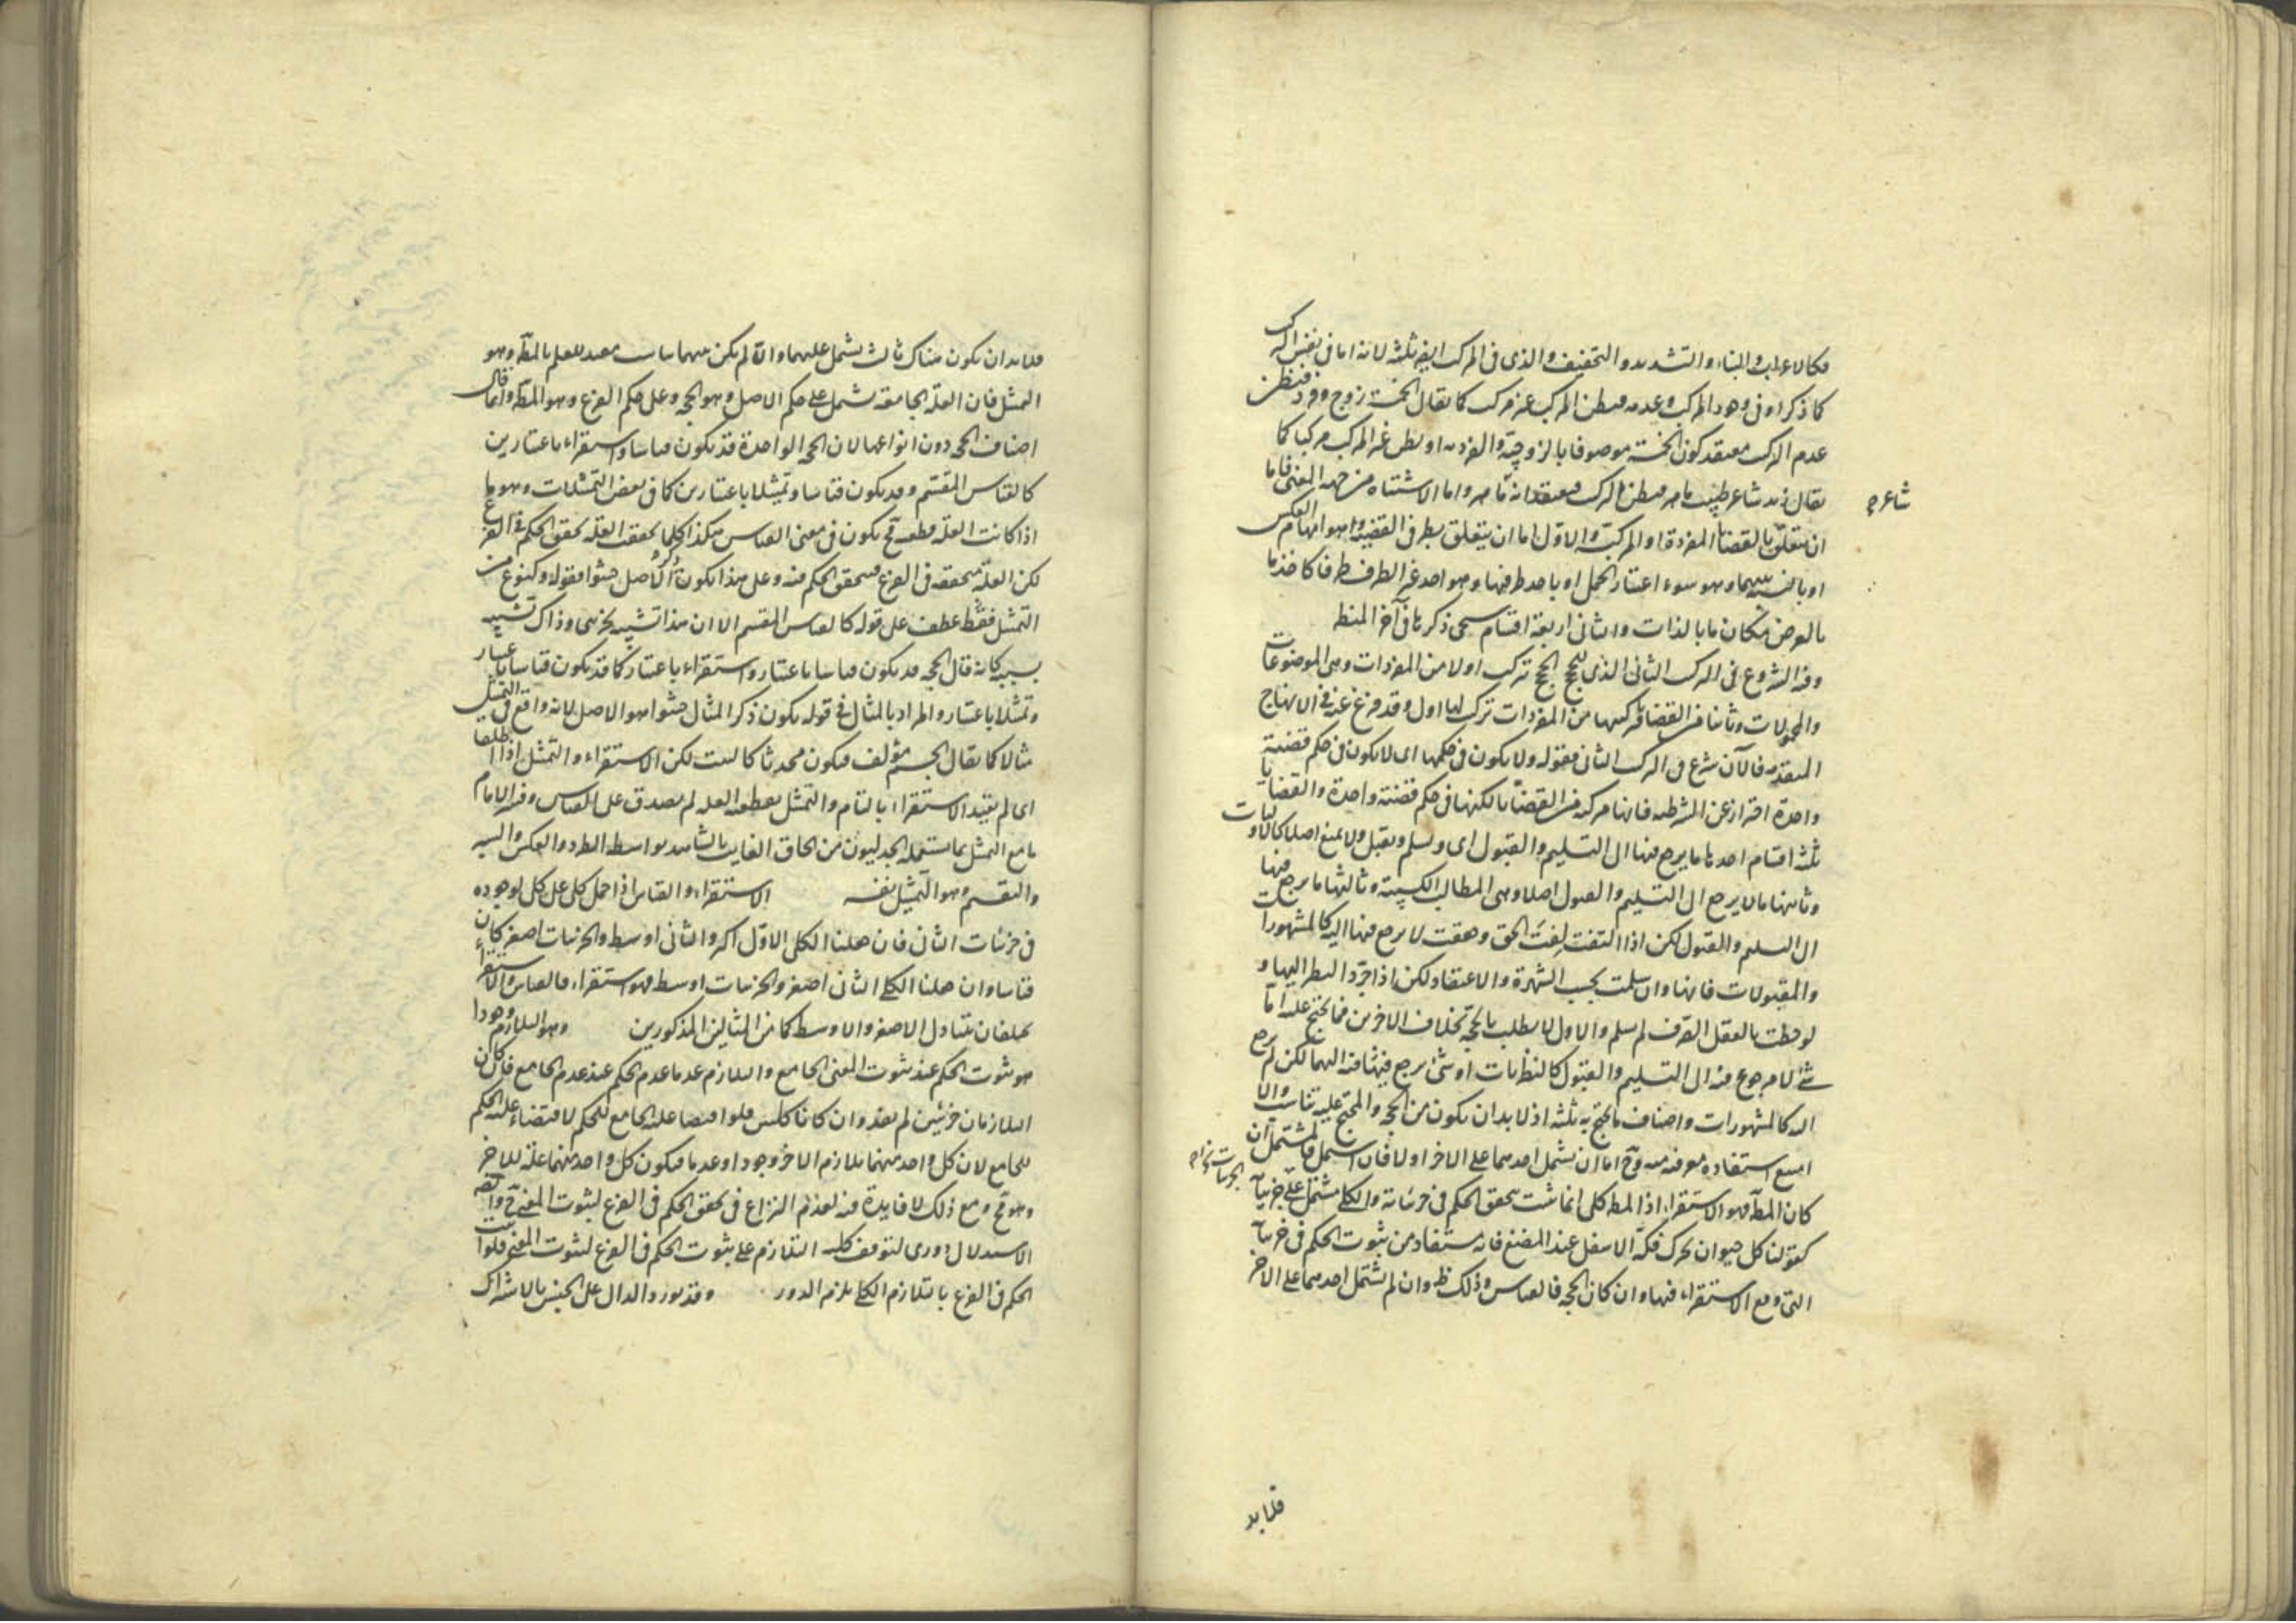 فكالاعراب والبناء والتشديد والتخفيف والذى فى المركب ايضا ثلثة لانه اما فى نفس التركيب
كما ذكر او فى وجود المركب وعدمه فيظن المركب غير مركب كما يقال الخمسة زوج وفرد فيظن
عدم التركيب فيعتقد كون الخمسة موصوفا بالزوجية والفردية او يظن غير المركب مركبا كما
يقال زيد شاعر طبيب ماهر فيظن التركيب فيعتقد انه ماهر واما الاشتباه من جهة المعنى فاما
شاعر
ان يتعلق بالقضايا المفردة او المركبة والاول اما ان يتعلق بطرفى القضية وهو ايهام العكس
او بالنسبة بينهما وهو سوء اعتبار الحمل او باحد طرفيها وهو احد غير الطرف طرفا كاخذ ما
بالعرض مكان ما بالذات والثانى اربعة اقسام سيجئ ذكرها فى آخر المنطق
وفى الشروع فى التركيب الثانى الذى للحجج الحجج تركب اولا من المفردات وهى الموضوعات
والمحمولات وثانيا من القضايا فتركيبها من المفردات تركيب لها اول وقد فرغ عنه فى الانهاج
المتقدمة فالآن شرع فى التركيب الثانى فقوله ولا يكون فى حكمها اى لا يكون فى حكم قضية
واحدة احتراز عن الشرطية فانها مركبة من القضايا لكنها فى حكم قضية واحدة والقضايا
ثلثة اقسام احدها ما يرجع منها الى التسليم والقبول اى ويسلم ويقبل ولا يمنع اصلا كالاوليات
وثانيها ما لا يرجع الى التسليم والقبول اصلا وهى المطالب الكسبية وثالثها ما يرجع منها
الى التسليم والقبول لكن اذا التفت لفت الحق وحققت لا يرجع منها اليه كالمشهورات
والمقبولات فانها وان سلمت بحسب الشهرة والاعتقاد لكن اذا جرد النظر اليها و
لوحظت بالعقل الصرف لم يسلم والاول لا يطلب بالحجة بخلاف الاخرين فما يحتج عليه اما
شئ لا مرجوع منه الى التسليم والقبول كالنظريات او شئ يرجع فيه منه اليهما لكن لم يرجع
اليه كالمشهورات واصناف ما يحتج به ثلثة اذ لا بد ان يكون من الحجة والمحتج عليه تناسب والا
امتنع استفادة معرفته منه وح اما ان يشتمل احدهما على الاخر او لا فان اشتمل فالمشتمل ان
كان المط فهو الاستقراء اذ المط كلى انما يثبت بتحقق الحكم فى جزئياته والكلى مشتمل على جزئياته
كقولنا كل حيوان يحرك فكه الاسفل عند المضغ فانه مستفاد من ثبوت الحكم فى جزئياته
التى وقع الاستقراء فيها وان كان الحجة فالقياس وذلك ظ وان لم يشتمل احدهما على الاخر
فلا بد
فلا بد ان يكون هناك ثالث يشتمل عليهما والا لم يكن بينهما تناسب مفيد للعلم بالمط وهو
التمثيل فان العلة الجامعة تشمل على حكم الاصل وهو الحجة وعلى حكم الفرع وهو المط وانما قال
اصناف الحجة دون انواعها لان الحجة الواحدة قد يكون قياسا واستقراء باعتبارين
كالقياس المقسم وقد يكون قياسا وتمثيلا باعتبارين كما فى بعض التمثيلات وهو ما
اذا كانت العلة قطعية فح يكون فى معنى القياس هكذا كلما تحقق العلة تحقق الحكم فى الفرع
لكن العلة متحققة فى الفرع فيتحقق الحكم فيه وعلى هذا يكون ذكر الاصل حشوا فقوله وكنوع من
التمثيل فقط عطف على قوله كالقياس المقسم الا ان هذا تشبيه بجزئى وذاك تشبيه
بسببه كانه قال الحجة قد يكون قياسا باعتبار واستقراء باعتبار كما قد يكون قياسا باعتبار
وتمثيلا باعتبار والمراد بالمثال فى قوله يكون ذكر المثال حشوا هو الاصل لانه واقع فى التمثيل
مثالا كما يقال الجسم مؤلف فيكون محدثا كالبيت لكن الاستقراء والتمثيل اذا اطلقا
اى لم يقيد الاستقراء بالتام والتمثيل بقطعية العلة لم يصدق على القياس وفسر الامام
ما مع التمثيل بما يستعمله الجدليون من الحاق الغايب بالشاهد بواسطة الطرد والعكس والسبر
والتقسيم وهو التمثيل بنفسه الاستقراء والقياس اذا حمل كلى على كلى لوجوده
فى جزئيات الثانى فان جعلنا الكلى الاول اكبر والثانى اوسط والجزئيات اصغر كان
قياسا وان جعلنا الكلى الثانى اصغر والجزئيات اوسط فهو استقراء فالقياس والاستقراء
يختلفان بتبادل الاصغر والاوسط كما فى المثالين المذكورين وهو التلازم وجودا
هو ثبوت الحكم عند ثبوت المعنى الجامع والتلازم عدما عدم الحكم عند عدم الجامع فان كان
التلازمان جزئيين لم يفد وان كانا كليين فلو اقتضيا علية الجامع للحكم لاقتضاء علية الحكم
للجامع لان كل واحد منهما يلازم الاخر وجودا وعدما فيكون كل واحد منهما علة للاخر
وهو مح ومع ذلك لا فايدة فيه لعدم النزاع فى تحقق الحكم فى الفرع لثبوت المعنى
الاستدلال دورى لتوقف كلية التلازم على ثبوت الحكم فى الفرع لثبوت المعنى فلو اثبت
الحكم فى الفرع بالتلازم الكلى يلزم الدور وقد يورد الدال على الجنس بالاشتراك